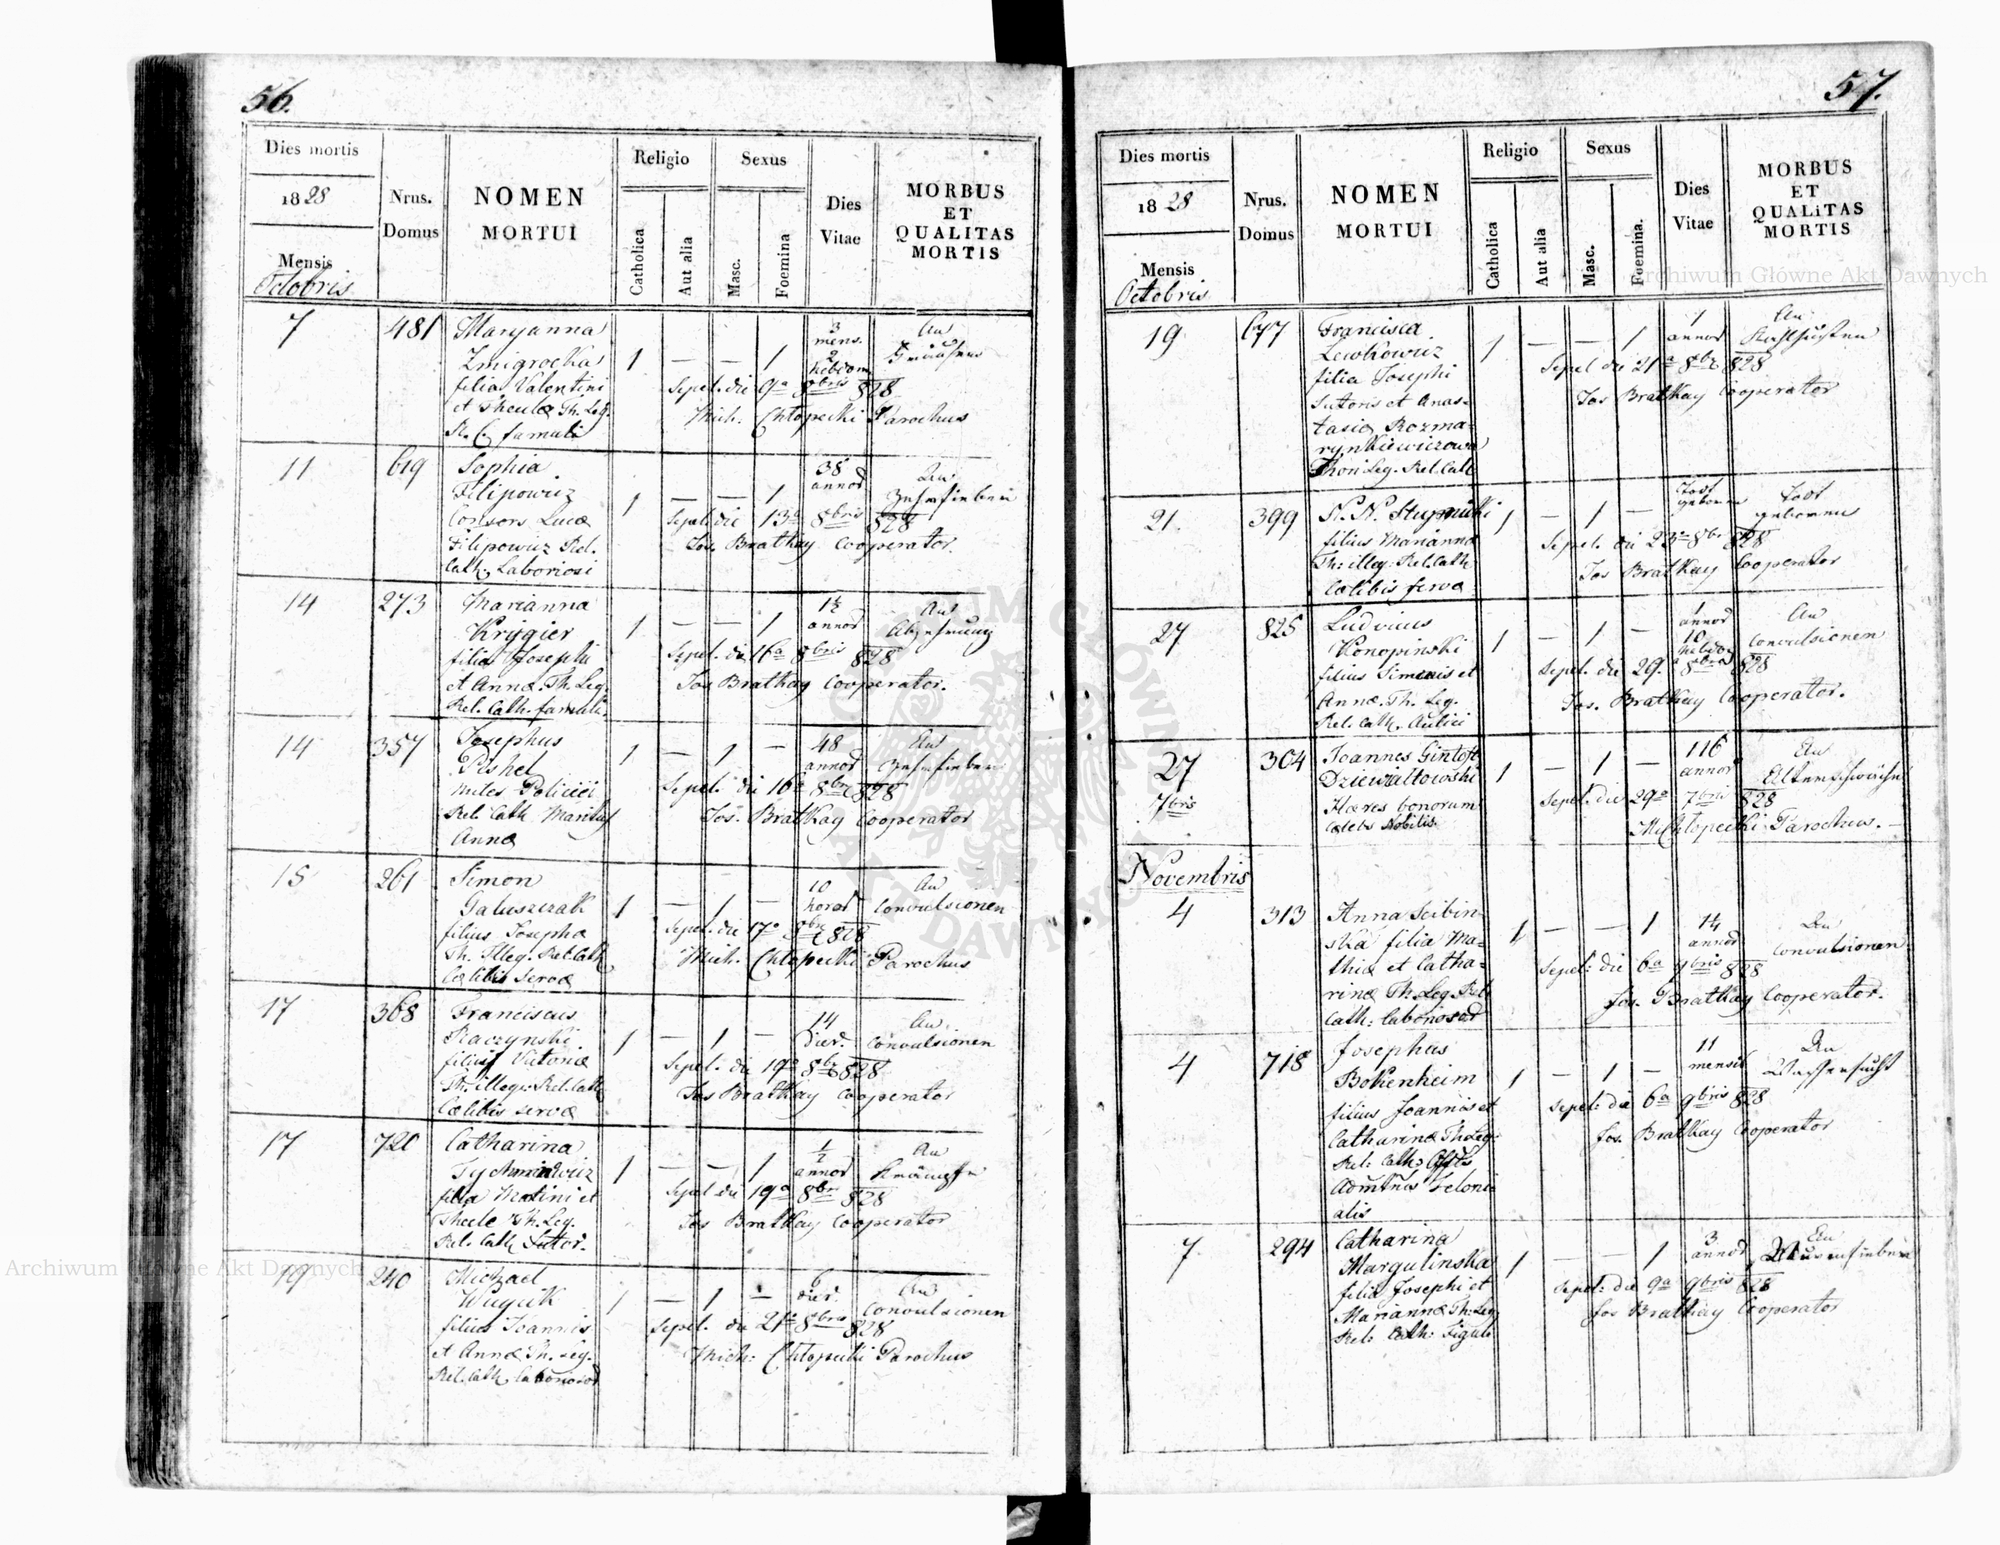 56.
Dies mortis
1828
Mensis
Octobris
Nrus.
Domus
NOMEN
MORTUI
Religio
Catholica
Aut alia
Sexus
Masc.
Foemina
Dies
Vitae
MORBUS
ET
QUALITAS
MORTIS
7 481 Maryanna
Zmigrocka
filia Valentini
et Theclæ Th. Leg.
R. C. famuli
1 — — 1
3
mens.
2
hebdom
An
Sepel. die 9a 8bris 828
Mich. Chłopecki Parochus
11 619 Sophia
Filipowicz
Consors Lucæ
Filipowicz Rel.
Cath. Laboriosi
1 — — 1
38
annor
An
Zehrfieber
Sepel. die 13a 8bris 828
Jos. Bratkay Cooperator
14 273 Marianna
Krygier
filia Josephi
et Annæ Th. Leg.
Rel. Cath. famuli.
1 — — 1
1½
annor
An
Abzehrung
Sepel. die 16a 8bris 828
Jos Bratkay Cooperator.
14 357 Josephus
Pishel
miles Policiei
Rel. Cath. Maritus
Annæ
1 — 1 —
48
annor
An
Zehrfieber
Sepel. die 16a 8bris 828
Jos. Bratkay Cooperator
15 261 Simon
Galuszczak
filius Josephæ
Th. Illeg. Rel. Cath
Cælibis servæ
1 — 1 —
10
horar
An
Convulsionen
Sepel. die 17a 8bris 828
Mich. Chłopecki Parochus
17 368 Franciscus
Raczynski
filius Victoriæ
Th. illeg: Rel. Cath
Cælibis servæ
1 — 1 —
14
dier.
An
Convulsionen
Sepel. die 19a 8bris 828
Jos Bratkay Cooperator
17 720 Catharina
filia Martini et
Theclæ Th. Leg.
Rel. Cath Sutor.
1 — — 1
½
annor
An
Krämpfe
Sepel die 19a 8bris 828
Jos Bratkay Cooperator
19 240 Michael
filius Joannis
et Annæ Th. Leg.
Rel. Cath. Laborosor
1 — 1 —
6
dier.
An
Convulsionen
Sepel. die 21a 8bris 828
Mich: Chłopecki Parochus
57.
Dies mortis
1828
Mensis
Octobris
Nrus.
Domus
NOMEN
MORTUI
Religio
Catholica
Aut alia
Sexus
Masc.
Foemina.
Dies
Vitae
MORBUS
ET
QUALITAS
MORTIS
19 677 Francisca
Lewkowicz
filia Josephi
Sutoris et Anas-
tasiæ Rozma-
rynkiewiczowa
Thori Leg. Rel. Cath
1 — — 1
1
annor
An
Sepel die 21a 8br 828
Jos Bratkay Cooperator
21. 399 N. N.
filius Mariannæ
Th: illeg: Rel. Cath
Cælibis servæ
1 — 1 —
Todt
geboren
Todt
geboren
Sepel. die 23a 8br 828
Jos Bratkay Cooperator
27 825 Ludvicus
Konopinski
filius Simonis et
Annæ. Th. Leg.
Rel. Cath. Aulici
1 — 1 —
1
annor
10
hebdo
An
Convulsionen
Sepel. die 29. 8bris 828
Jos. Bratkay Cooperator.
27
7bris
304 Joannes Gintoft
Dziewałtowski
Hæres bonorum
Cælebs Nobilis
1 — 1 —
116
annor
An
Altersschwäche
Sepel. die 29a 7bris 828
M. Chłopecki Parochus. —
Novembris
4 313 Anna Scibin-
ska filia Ma-
thiæ et Catha-
rinæ Th. Leg. Rel.
Cath: Laborosor
1 — — 1
14
annor
An
convulsionen
Sepel: die 6a 9bris 828
Jos. Bratkay Cooperator.
4 718 Josephus
Bokenheim
filius Joannis et
Catharinæ Th Leg:
Rel: Cath:
1 — 1 —
11
mensis
An
Wassersucht
Sepel: die 6a 9bris 828
Jos. Bratkay Cooperator
7 294 Catharina
Margulinska
filia Josephi et
Mariannæ Th: Leg
Rel: Cath: Figuli
1 — — 1
3
annor
An
Sepel: die 9a 9bris 828
Jos Bratkay Cooperator
Archiwum Główne Akt Dawnych
Archiwum Główne Akt Dawnych